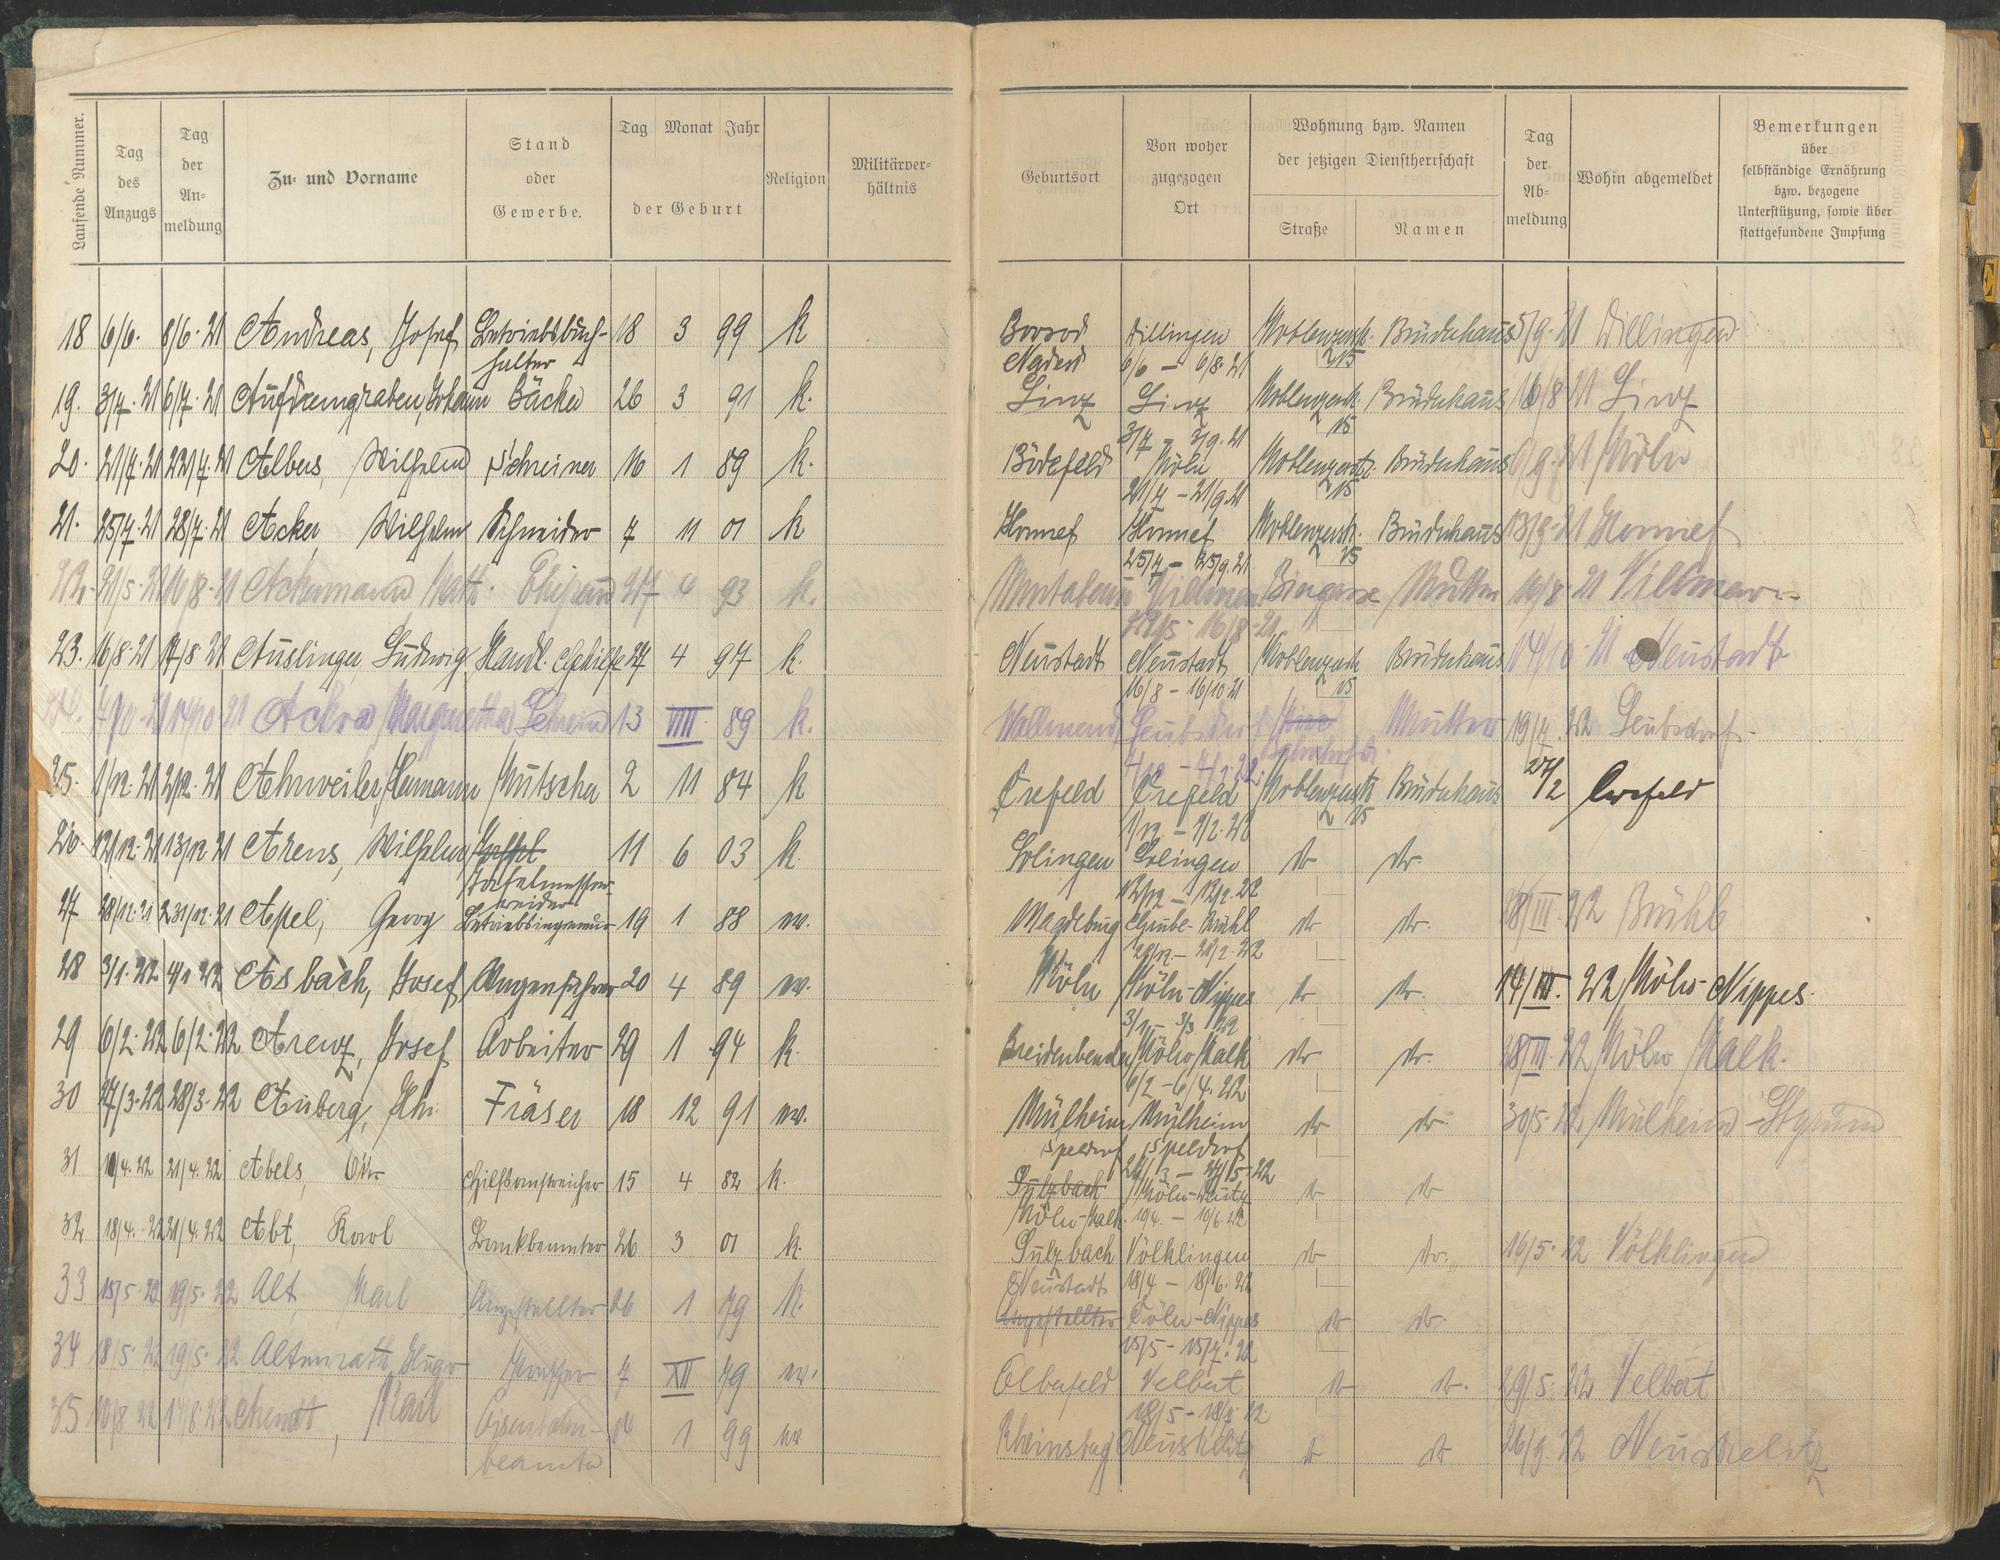 Laufende Nummer.
Tag des Anzugs
Tag der An-meldung
Zu- und Vorname
Stand oder Gewerbe.
Tag Monat Jahr
der Geburt
Religion
Militärver-hältnis
Geburtsort
Von woher zugezogen Ort
Wohnung bzw. Namen
der jetzigen Dienstherrschaft
Straße
Namen
Tag der Ab-meldung
Wohin abgemeldet
Bemerkungen
über
selbständige Ernährung
bzw. bezogene
Unterstützung, sowie über
stattgefundene Impfung
18 6/6. 8/6. 21 Andreas, Josef Betriebsbuch- 18 3 99 k Dillingen Koblenzerstr. Brüderhaus 5/9. 21 Dillingen
halter 6/6 – 6/8. 21 15
19. 3/7. 21 6/7. 21 Aufdemgraben Johann Bäcker 26 3 91 k. Linz Linz Koblenzerstr. Brüderhaus 16/8 21 Linz
3/7 – 3/9. 21 15
20. 21/7. 21 22/7. 21 Albers, Wilhelm Schreiner 16 1 89 k. Bödefeld Köln Koblenzerstr. Brüderhaus 21 Köln
21/7 – 21/9 21 15
21. 25/7. 21 28/7. 21 Acker Wilhelm Schneider 7 11 01 k Honnef Honnef Koblenzerstr. Brüderhaus 21 Honnef
25/7 – 25/9. 21 15
22. 21/5. 21 16/8. 21 Ackermann Math. 27 93 k. Montabaur Villmar Mutter 16/8. 21 Villmar
16/8 21
23. 16/8. 21 17/8. 21 Auslinger, Ludwig Handl. Gehilfe 27 4 97 k. Neustadt Neustadt Koblenzerstr. Brüderhaus 14/10. 21 Neustadt
16/8 – 16/10 21 15
24. 7/10. 21 14/10 21 Margaretha 13 VIII. 89 k. Leubsdorf Mutter 19/4. 22 Leubsdorf
25. 1/12. 21 2/12. 21 Ahrweiler, Hermann Kutscher 2 11 84 k Crefeld Crefeld Koblenzerstr. Brüderhaus 27/2 Crefeld
1/12. – 1/2. 22 15
26. 12/12. 21 13/12 21 Arens, Wilhelm 11 6 03 k. Solingen Solingen do do.
12/12 – 12/2. 22
27 28/12. 21 31/12. 21 Apel, Georg Betriebsingenieur 19 1 88 ev. Magdeburg Grube-Brühl do do. 18/III. 22 Brühl
28 3/1. 22 4/1. 22 Asbach, Josef Wagenführer 20 4 89 ev. Köln Köln-Nippes do do. 14/III. 22 Köln-Nippes.
3/1 – 3/3 22
29 6/2. 22 6/2. 22 Arenz, Josef Arbeiter 29 1 94 k. Köln Kalk do do. 28/III. 22 Köln Kalk.
6/2 – 6/4. 22
30 27/3. 22 28/3. 22 Auberg, Joh. Fräser 18 12 91 ev. Mülheim Mülheim do do. 30/5. 22 Mülheim-Styrum
Speldorf Speldorf
31 21/4. 22 Abels, Otto Hilfsanstreicher 15 4 82 k. Sulzbach Köln-Deutz do do
Köln-Kalk. 10/4. – 10/6. 22
32 18/4. 22 21/4. 22 Abt, Karl Bankbeamter 26 3 01 k. Sulzbach Völklingen do do. 16/5. 22 Völklingen
Neustadt 18/4 – 18/6. 22
33 15/5. 22 19/5. 22 Alt, Karl Angestellter 26 1 79 k. Angestellter Cöln-Nippes do do.
15/5 – 15/7. 22
34 18/5. 22 19/5. 22 Altenrath, Hugo 7 XII 79 ev. Elberfeld Velbert do do. 29/5. 22 Velbert
18/5 – 18/7. 22
35 10/8. 22 14/8. 22 Arendt, Karl Eisenbahn- 14 1 99 ev Rheinsberg Neustrelitz do do 26/9. 22 Neustrelitz
beamter